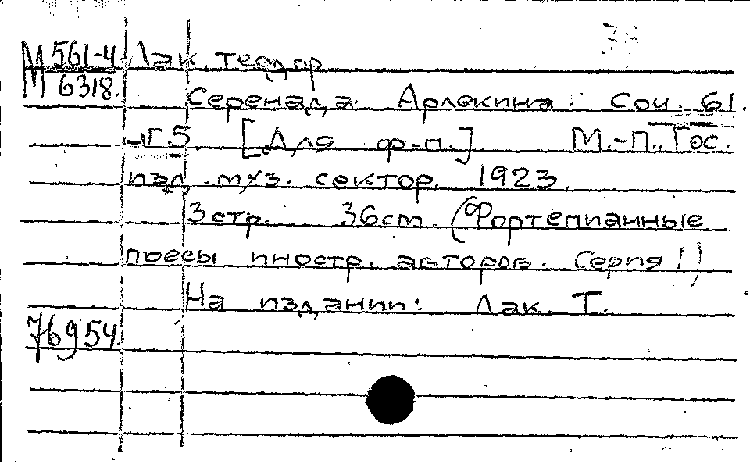 М 561-4 Лак, Теодор
М 6318
Серенада Арлекина. Соч. 61.
№5. [Для ф-п.] М.-П., Гос.
изд. муз. сектор, 1923
3 стр. 36 cm. (Фортепианные
пьесы иностр. авторов. Серия !)
На издании: Лак. Т.
76954